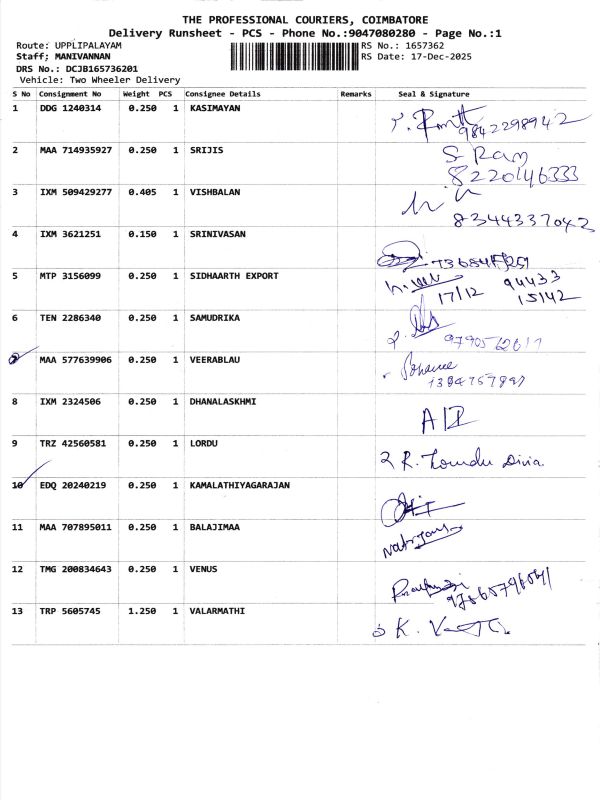 THE PROFESSIONAL COURIERS, COIMBATORE
Delivery Runsheet - PCS - Phone No.:9047080280 - Page No.:1
Route: UPPLIPALAYAM
RS No.: 1657362
Staff; MANIVANNAN
RS Date: 17-Dec-2025
DRS No.: DCJB165736201
Vehicle: Two Wheeler Delivery
S No Consignment No Weight PCS Consignee Details Remarks Seal & Signature
1 DDG 1240314 0.250 1 KASIMAYAN
9842298942
2 MAA 714935927 0.250 1 SRIJIS
S Ram
8220146333
3 IXM 509429277 0.405 1 VISHBALAN
8344337042
4 IXM 3621251 0.150 1 SRINIVASAN
5 MTP 3156099 0.250 1 SIDHAARTH EXPORT
17/12 94433
15142
6 TEN 2286340 0.250 1 SAMUDRIKA
7 MAA 577639906 0.250 1 VEERABLAU
8 IXM 2324506 0.250 1 DHANALASKHMI
9 TRZ 42560581 0.250 1 LORDU
R.
10 EDQ 20240219 0.250 1 KAMALATHIYAGARAJAN
11 MAA 707895011 0.250 1 BALAJIMAA
12 TMG 200834643 0.250 1 VENUS
13 TRP 5605745 1.250 1 VALARMATHI
K.